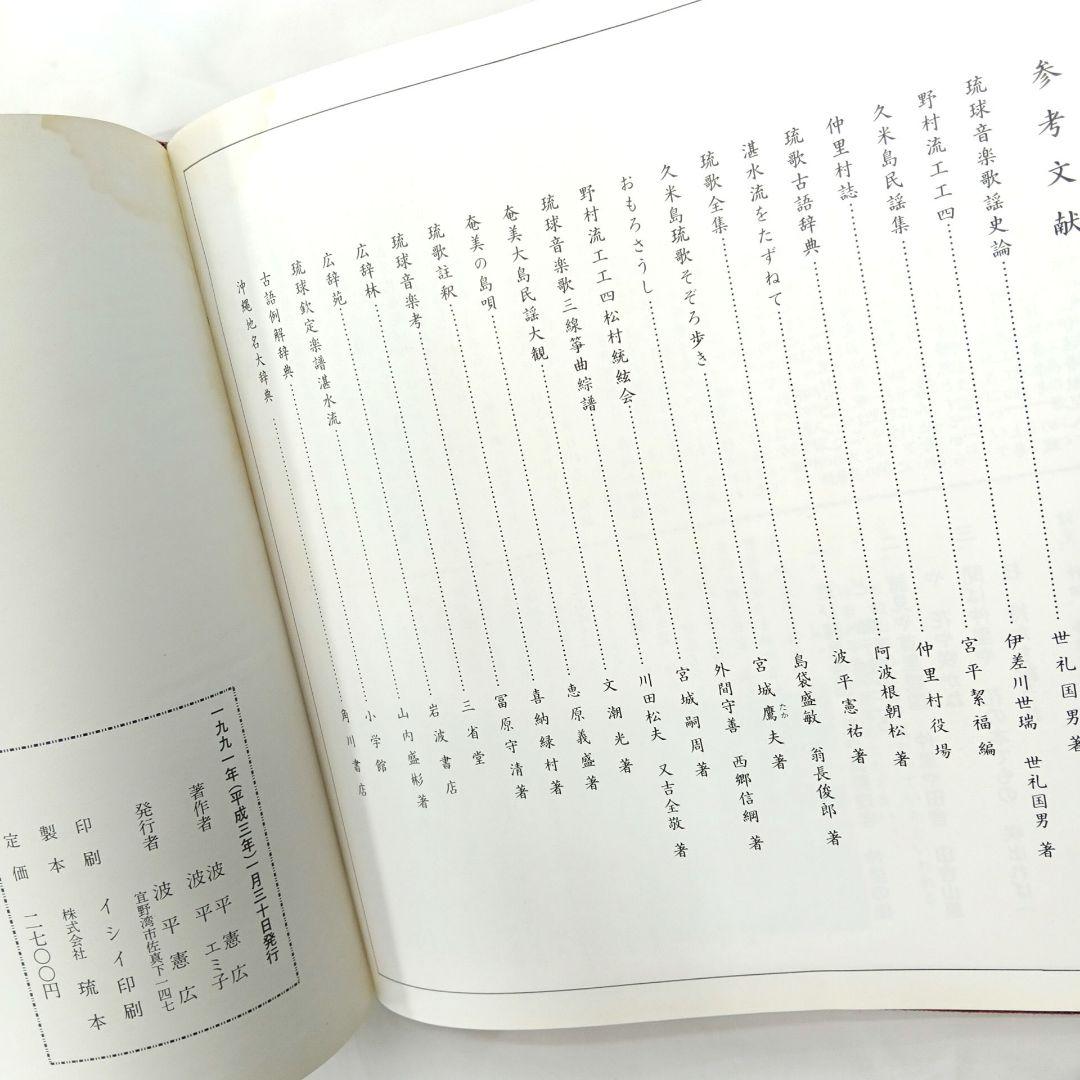 参考文献
琉球音楽歌謡史論……世礼国男著
野村流工工四……伊差川世瑞 世礼国男 著
久米島民謡集……宮平絜福編
仲里村誌……仲里村役場
琉歌古語辞典……阿波根朝松著
湛水流をたずねて……波平憲祐著
琉歌全集……島袋盛敏 翁長俊郎 著
久米島琉歌そぞろ歩き……宮城鷹夫著
たか
おもろさうし……外間守善 西郷信綱 著
野村流工工四松村統絃会……宮城嗣周著
琉球音楽歌三線箏曲綜譜……川田松夫 又吉全敬 著
奄美大島民謡大観……文潮光著
奄美の島唄……恵原義盛著
琉歌註釈……喜納緑村著
琉球音楽考……冨原守清著
広辞林……三省堂
広辞苑……岩波書店
琉球欽定楽譜湛水流……山内盛彬著
古語例解辞典……小学館
沖縄地名大辞典……角川書店
一九九一年(平成三年)一月三十日発行
著作者 波平憲広
波平エミ子
発行者 波平憲広
宜野湾市佐真下一四七
印刷 イシイ印刷
製本 株式会社 琉本
定価 二七〇〇円